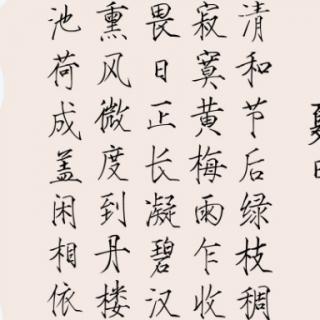 夏日
清和节后绿枝稠
寂寞黄梅雨乍收
畏日正长凝碧汉
熏风微度到丹楼
池荷成盖闲相依